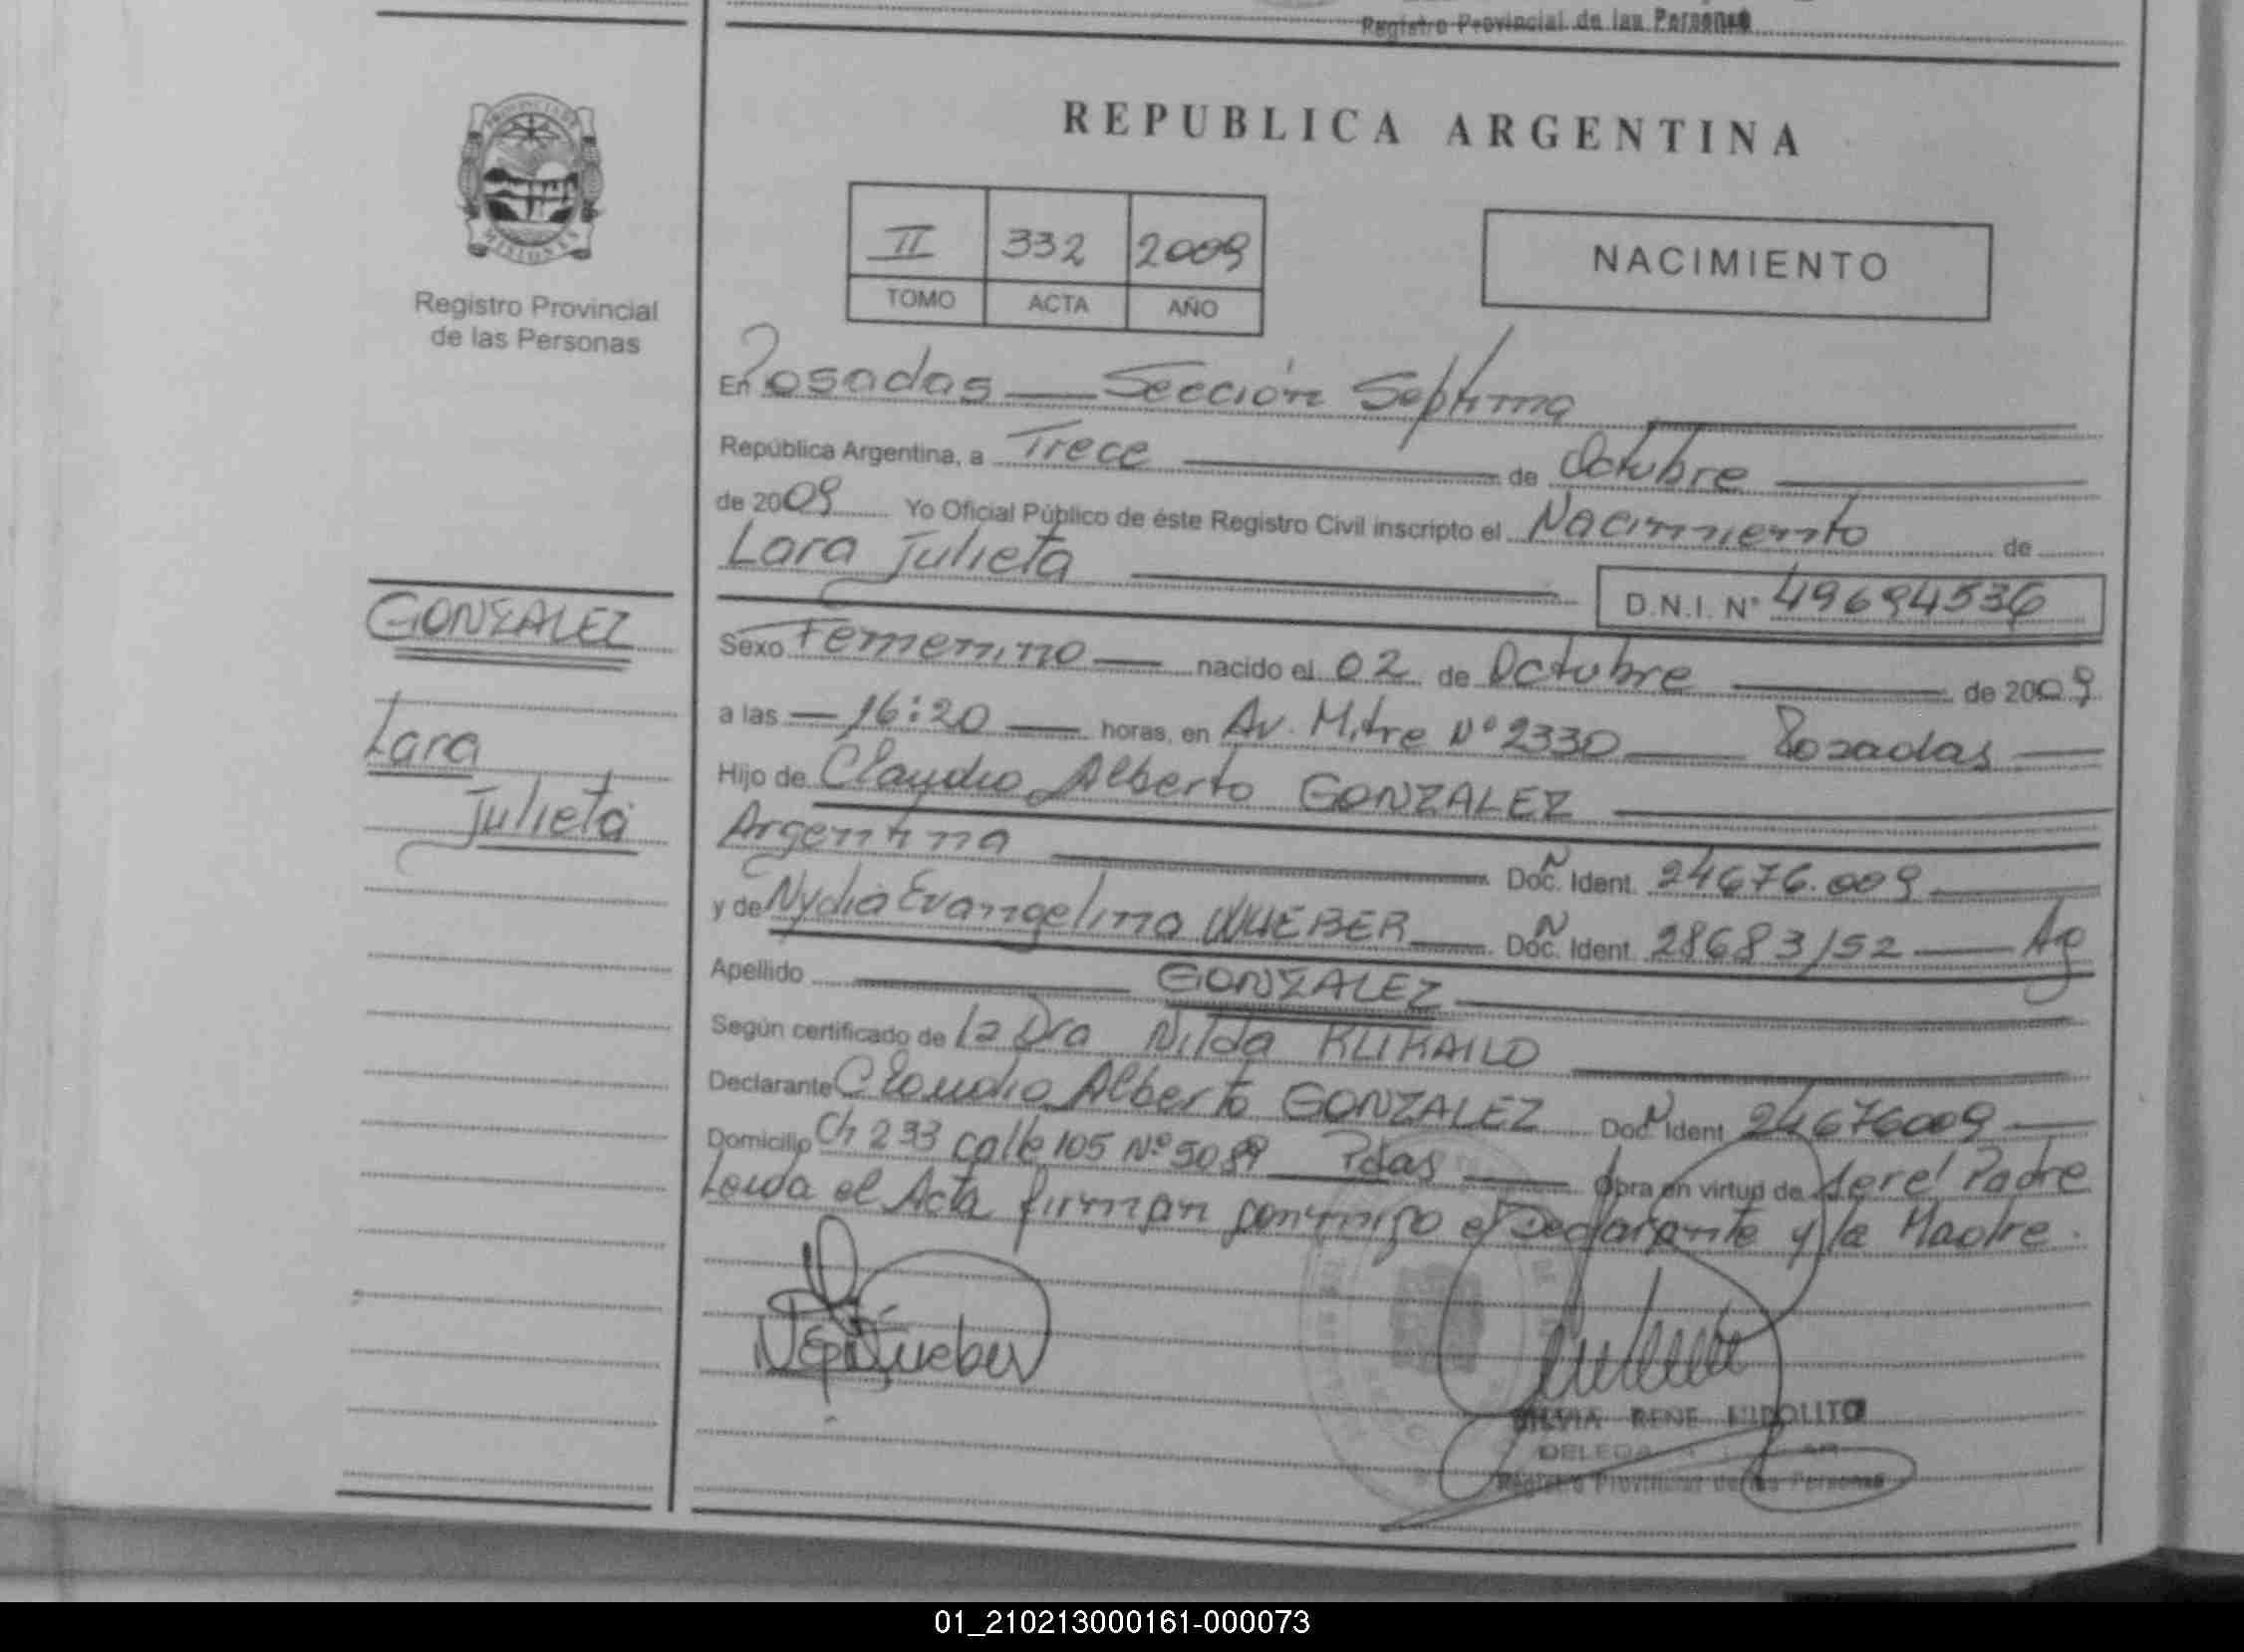 Registro Provincial de las Personas
REPUBLICA ARGENTINA
PROVINCIA DE
MISIONES
Registro Provincial
de las Personas
II 332 2009
TOMO ACTA AÑO
NACIMIENTO
En Posadas — Sección Septima
República Argentina, a Trece de Octubre
de 2009 Yo Oficial Público de éste Registro Civil inscripto el Nacimiento de
Lara Julieta D.N.I. N° 49694536
GONZALEZ
Lara
Julieta
Sexo Femenino — nacido el 02 de Octubre de 2009
a las — 16:20 — horas, en Av. Mitre Nº 2330 — Posadas —
Hijo de Claudio Alberto GONZALEZ
Argentina Doc. Ident. 24676.009
y de Nydia Evangelina WUEBER Doc. Ident. 28683152 — Ag
Apellido GONZALEZ
Según certificado de la Dra Nilda KLIKAILO
Declarante Claudio Alberto GONZALEZ Doc. Ident 24676009
Domicilio Ch 233 calle 105 Nº 5089 Pdas Obra en virtud de ser el Padre
Leida el Acta firman conmigo el Declarante y la Madre.
SILVIA RENE HIPOLITO
Registro Provincial de las Personas
01_210213000161-000073